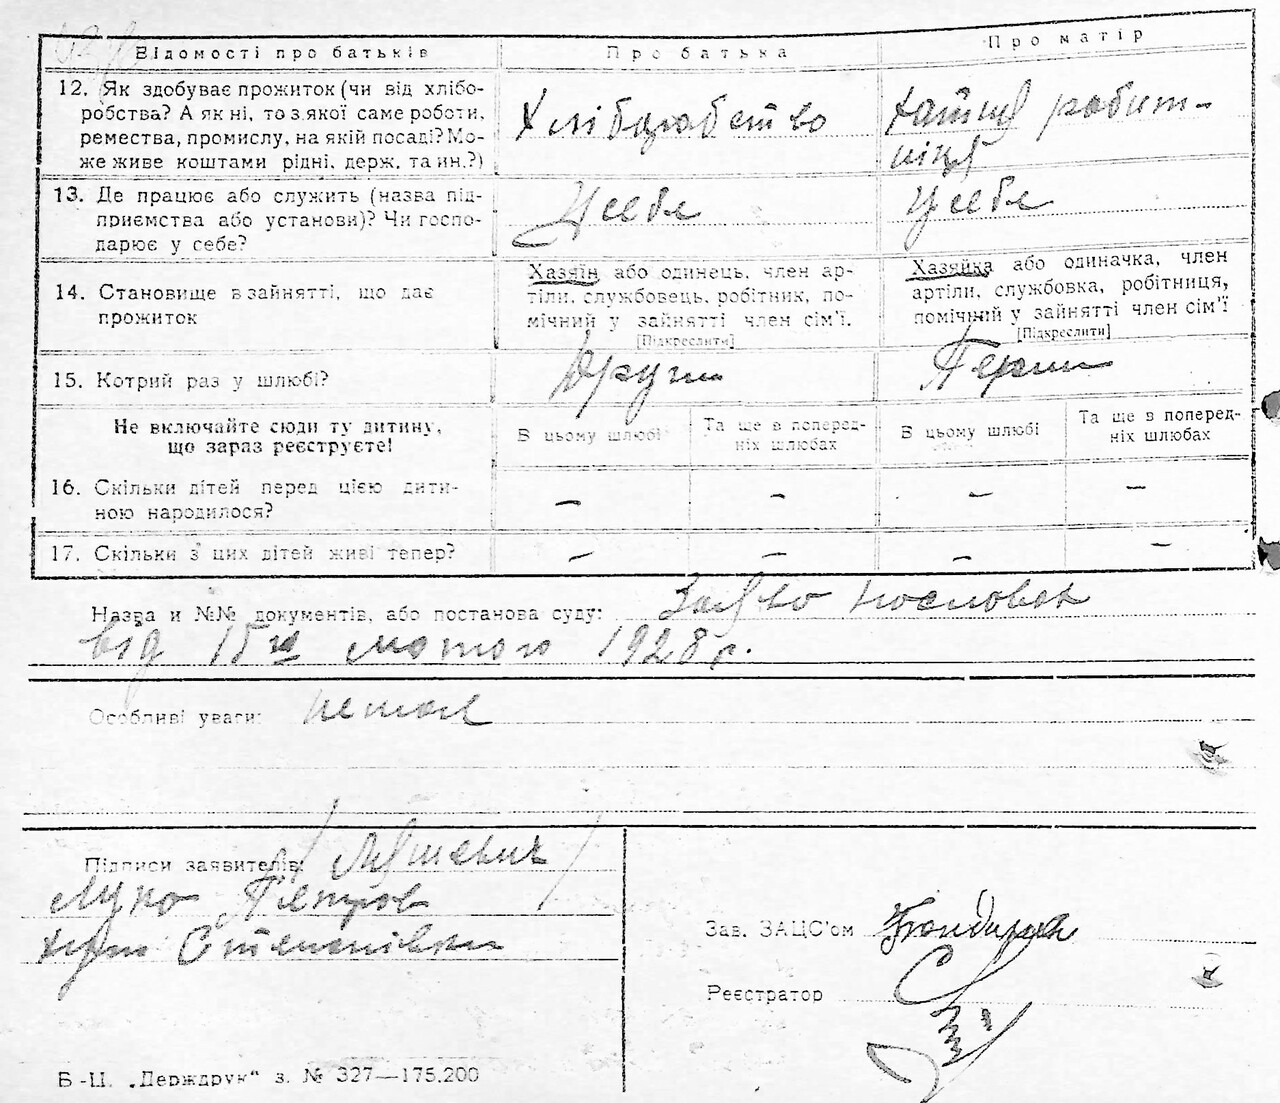 Відомості про батьків
Про батька
Про матір
12. Як здобуває прожиток (чи від хлібо-
робства? А як ні, то з якої саме роботи,
ремества, промислу, на якій посаді? Мо-
же живе коштами рідні, держ. та ин.?)
Хліборобство
Хатня робіт-
ниця
13. Де працює або служить (назва під-
приємства або установи)? Чи госпо-
дарює у себе?
У себе
У себе
14. Становище в зайнятті, що дає
прожиток
Хазяїн або одинець, член ар-
тілі, службовець, робітник, по-
мічний у зайнятті член сім'ї.
[Підкреслити]
Хазяйка або одиначка, член
артіли, службовка, робітниця,
помічний у зайнятті член сім'ї
[Підкреслити]
15. Котрий раз у шлюбі?
Други
Перши
Не включайте сюди ту дитину,
що зараз реєструєте!
В цьому шлюбі
Та ще в поперед-
ніх шлюбах
В цьому шлюбі
Та ще в поперед-
ніх шлюбах
16. Скільки дітей перед цією дити-
ною народилося?
– – – –
17. Скільки з цих дітей живі тепер?
– – – –
Назва и №№ документів, або постанова суду:
від 15го лютого 1928 р.
Особливі уваги: немає
Підписи заявителів:
Луко Петров
Степанівни
Зав. ЗАЦС'ом
Реєстратор
Б-Ц. „Держдрук“ з. № 327—175.200